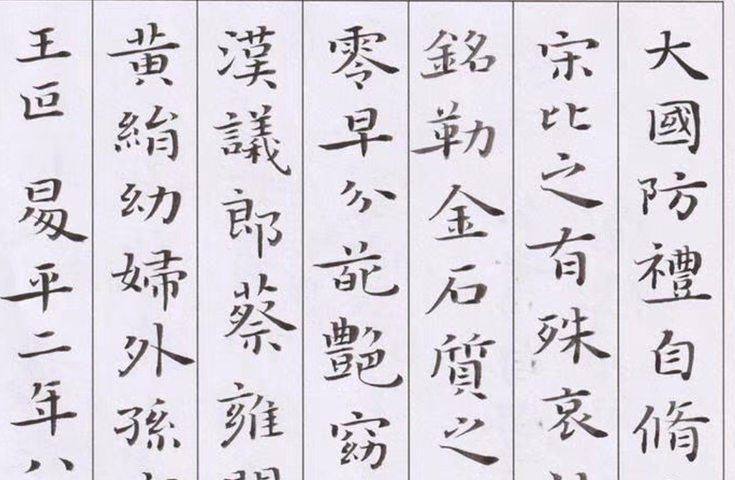 大國防禮自脩
宋比之有殊哀
銘勒金石質之
零早分葩艷窈
漢議郎蔡雍聞
黃絹幼婦外孫
王叵昜平二年八